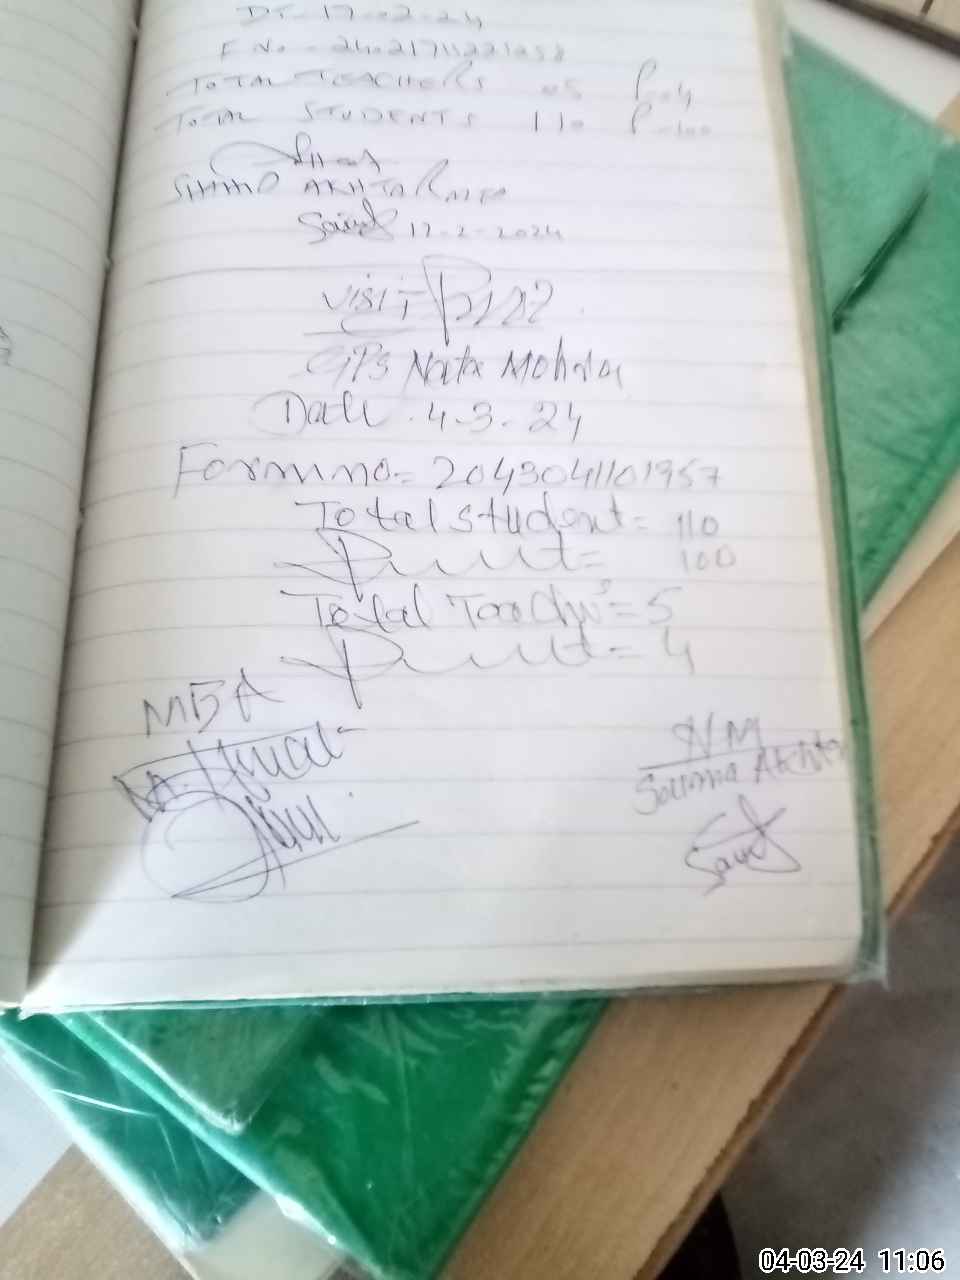 DT- 17-02-24
F No - 24021711221258
TOTAL TEACHERS 05 P-4
TOTAL STUDENTS 110 P-100
AKHTAR
Said 17-2-2024
Visit
GPS Nata Mohra
Date . 4.3.24
Form no = 2043041101957
Total student = 110
Prsent = 100
Total Teacher's = 5
Prsent = 4
MBA
NM
Saima Akhter
04-03-24 11:06